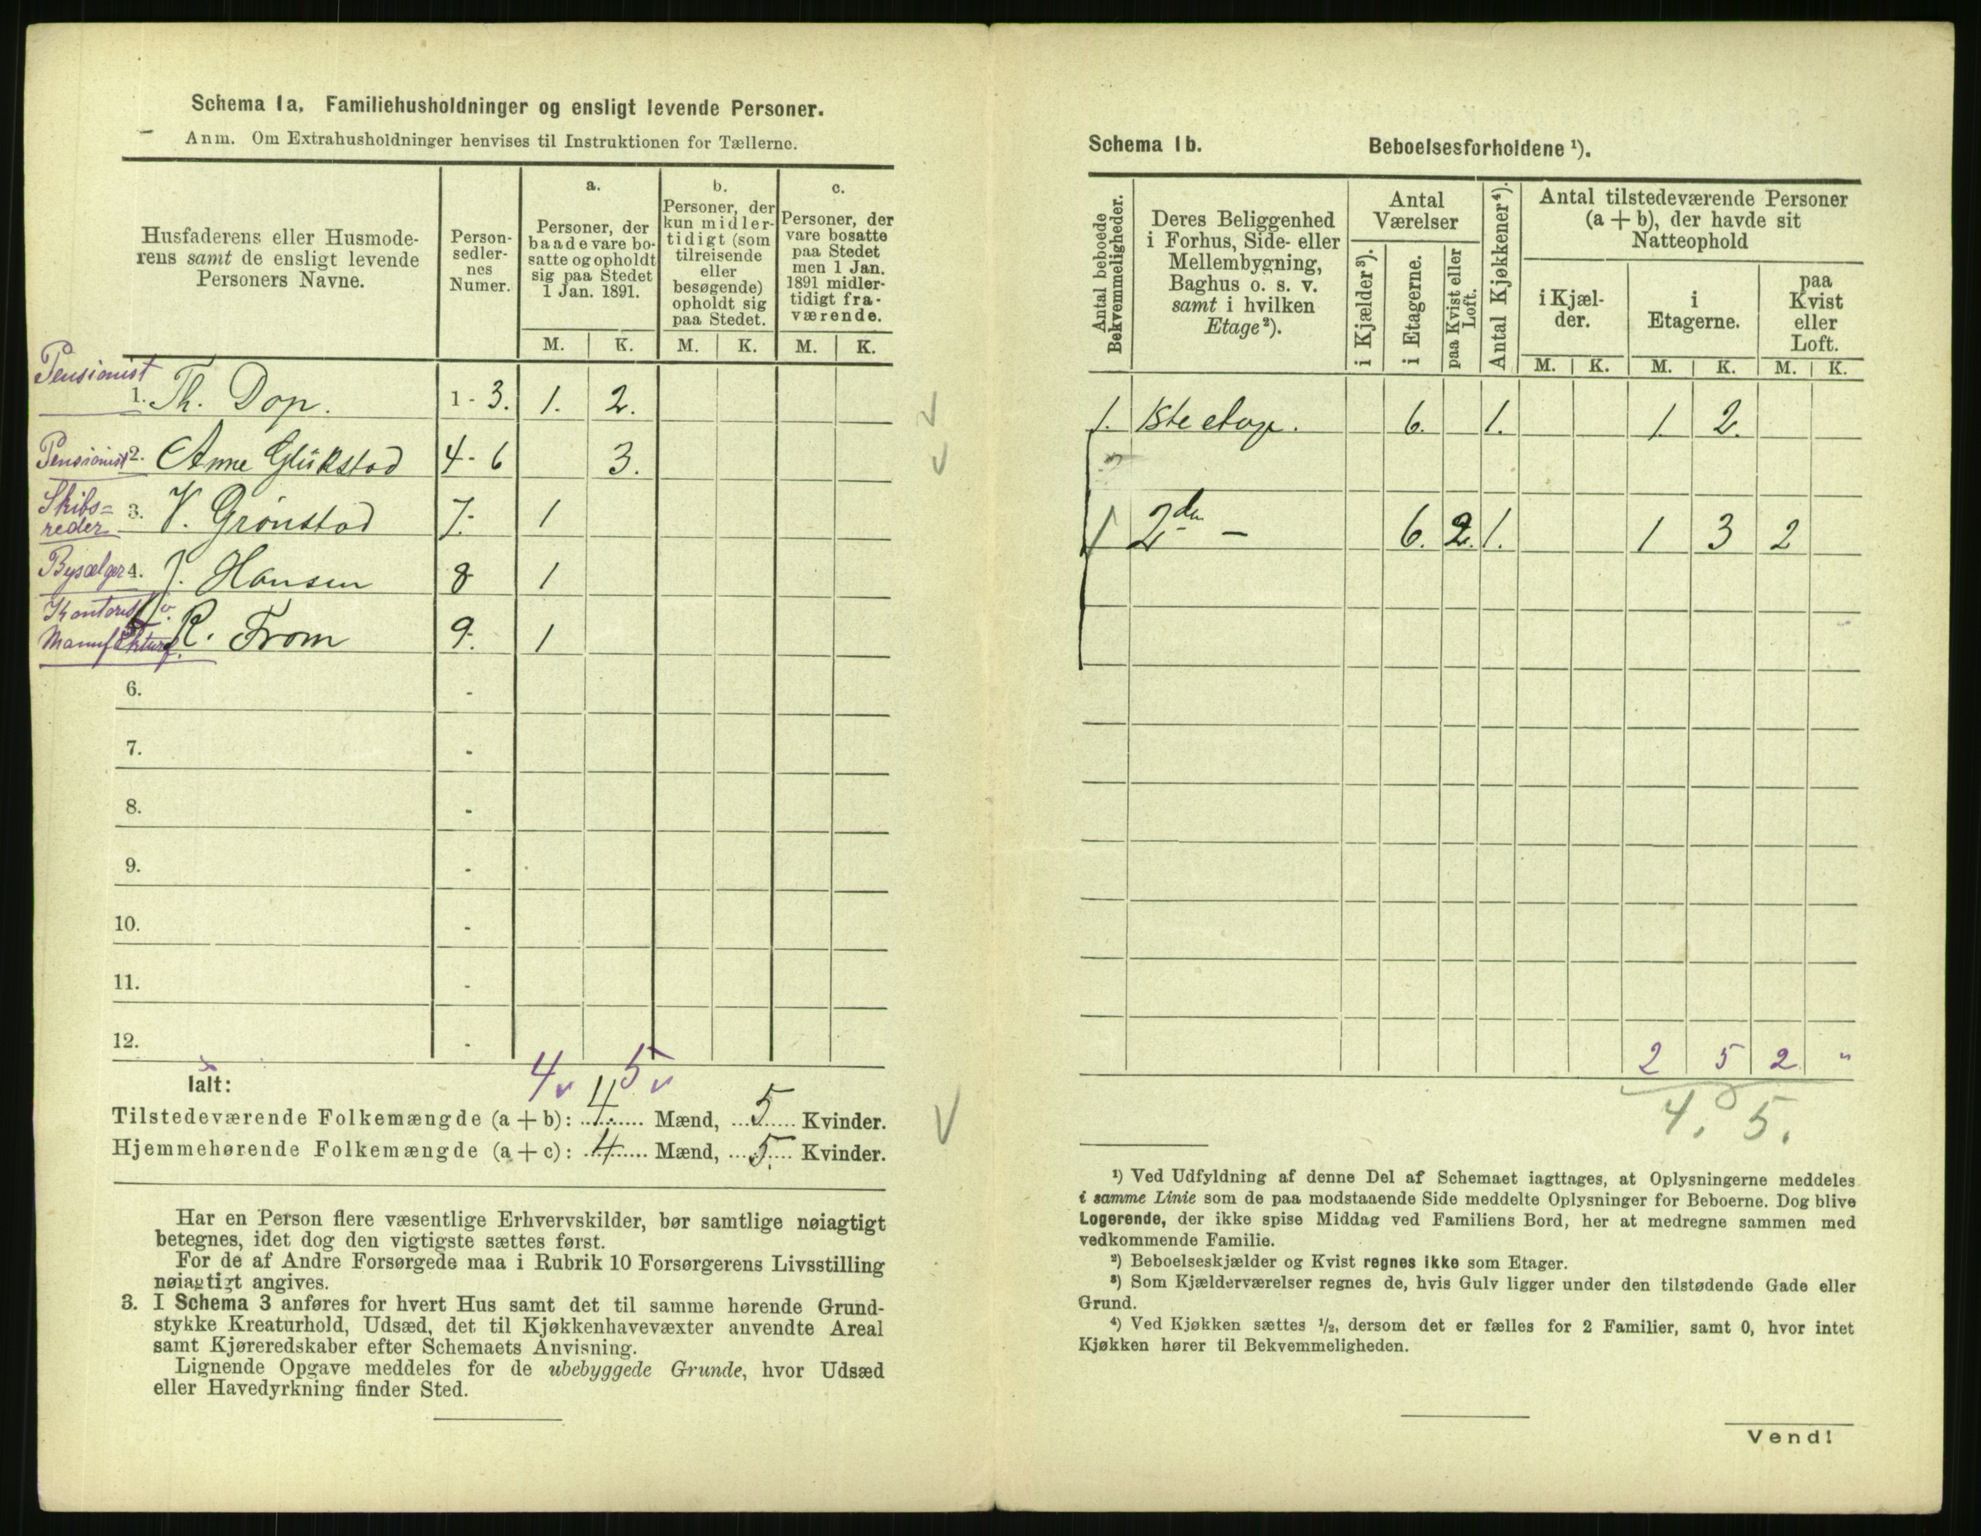 Schema 1a. Familiehusholdninger og ensligt levende Personer.
Anm. Om Extrahusholdninger henvises til Instruktionen for Tællerne.
Husfaderens eller Husmode-
rens samt de ensligt levende
Personers Navne.
Person-
sedler-
nes
Numer.
a.
Personer, der
baade vare bo-
satte og opholdt
sig paa Stedet
1 Jan. 1891.
b.
Personer, der
kun midler-
tidigt (som
tilreisende
eller
besøgende)
opholdt sig
paa Stedet.
c.
Personer, der
vare bosatte
paa Stedet
men 1 Jan.
1891 midler-
tidigt fra-
værende.
M. K. M. K. M. K.
Pensionist
1. Th. Dop. 1 - 3. 1. 2.
Pensionist 2. Anne Glükstad 4 - 6 3.
Skibs=
reder 3. V. Grönstad 7- 1
Bysælger 4. J. Hansen 8 1
Kontorist v.
Manufaktur R. From 9- 1
6. -
7. -
8. -
9. -
10. -
11. -
12. -
4 v 5 v
Ialt:
Tilstedeværende Folkemængde (a + b): 4. Mænd, 5 Kvinder.
Hjemmehørende Folkemængde (a + c): 4 Mænd, 5. Kvinder.
Har en Person flere væsentlige Erhvervskilder, bør samtlige nøiagtigt
betegnes, idet dog den vigtigste sættes først.
For de af Andre Forsørgede maa i Rubrik 10 Forsørgerens Livsstilling
nøiagtigt angives.
3. I Schema 3 anføres for hvert Hus samt det til samme hørende Grund-
stykke Kreaturhold, Udsæd, det til Kjøkkenhavevæxter anvendte Areal
samt Kjøreredskaber efter Schemaets Anvisning.
Lignende Opgave meddeles for de ubebyggede Grunde, hvor Udsæd
eller Havedyrkning finder Sted.
Schema 1b. Beboelsesforholdene ¹).
Antal beboede
Bekvemmeligheder.
Deres Beliggenhed
i Forhus, Side- eller
Mellembygning,
Baghus o. s. v.
samt i hvilken
Etage ²).
Antal
Værelser
i Kjælder ³).
i Etagerne.
paa Kvist eller
Loft.
Antal Kjøkkener ⁴).
Antal tilstedeværende Personer
(a + b), der havde sit
Natteophold
i Kjæl-
der.
i
Etagerne.
paa
Kvist
eller
Loft.
M. K. M. K. M. K.
1. 1ste etage. 6. 1. 1 2.
1 2den - 6. 2. 1. 1 3 2
2 5 2 "
4. 5.
¹) Ved Udfyldning af denne Del af Schemaet iagttages, at Oplysningerne meddeles
i samme Linie som de paa modstaaende Side meddelte Oplysninger for Beboerne. Dog blive
Logerende, der ikke spise Middag ved Familiens Bord, her at medregne sammen med
vedkommende Familie.
²) Beboelseskjælder og Kvist regnes ikke som Etager.
³) Som Kjælderværelser regnes de, hvis Gulv ligger under den tilstødende Gade eller
Grund.
⁴) Ved Kjøkken sættes ½, dersom det er fælles for 2 Familier, samt 0, hvor intet
Kjøkken hører til Bekvemmeligheden.
Vend!